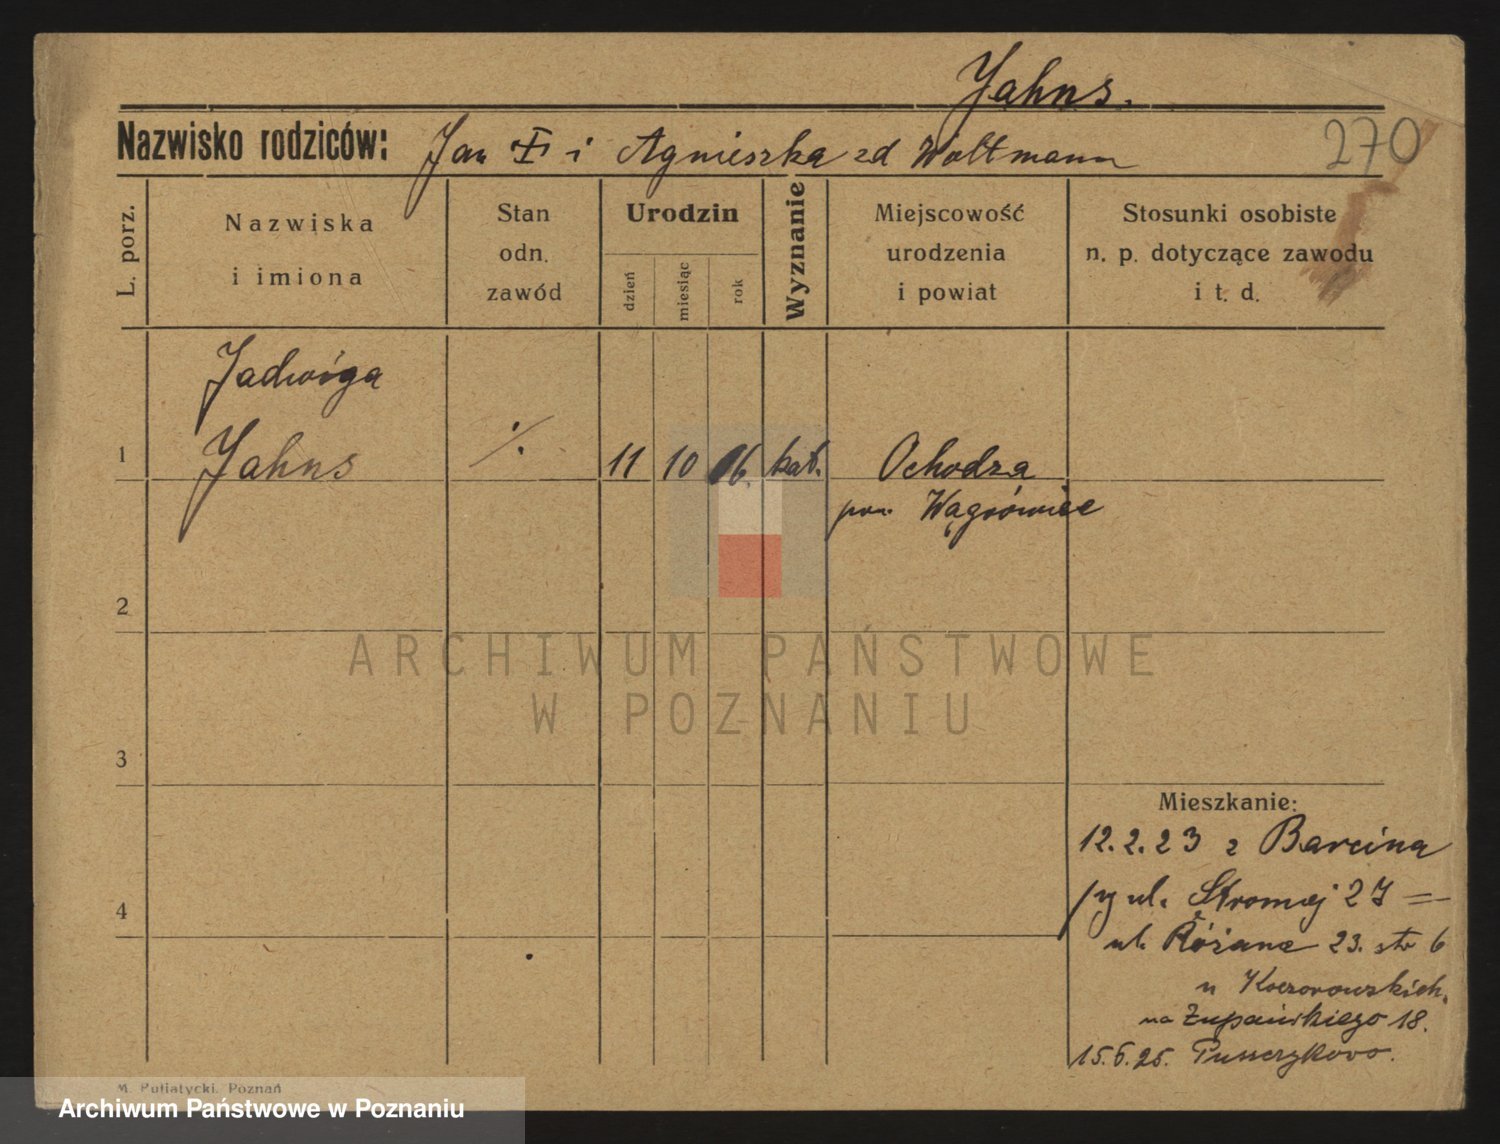 Jahns.
Nazwisko rodziców: Jan i Agnieszka zd Woltmann
270
L. porz.
Nazwiska
i imiona
Stan
odn.
zawód
Urodzin
dzień
miesiąc
rok
Wyznanie
Miejscowość
urodzenia
i powiat
Stosunki osobiste
n. p. dotyczące zawodu
i t. d.
Jadwiga
1 Jahns ./. 11 10 06. kat. Ochodza
pow. Wągrówiec
2
3
4
Mieszkanie:
12.2.23 z Barcina
przy ul. Stromej 27
ul. Różana 23. str 6
u Kaczorowskich.
na Żupańskiego 18.
15.6.25. Puszczykowo.
M. Puliatycki, Poznań
ARCHIWUM PAŃSTWOWE
W POZNANIU
Archiwum Państwowe w Poznaniu